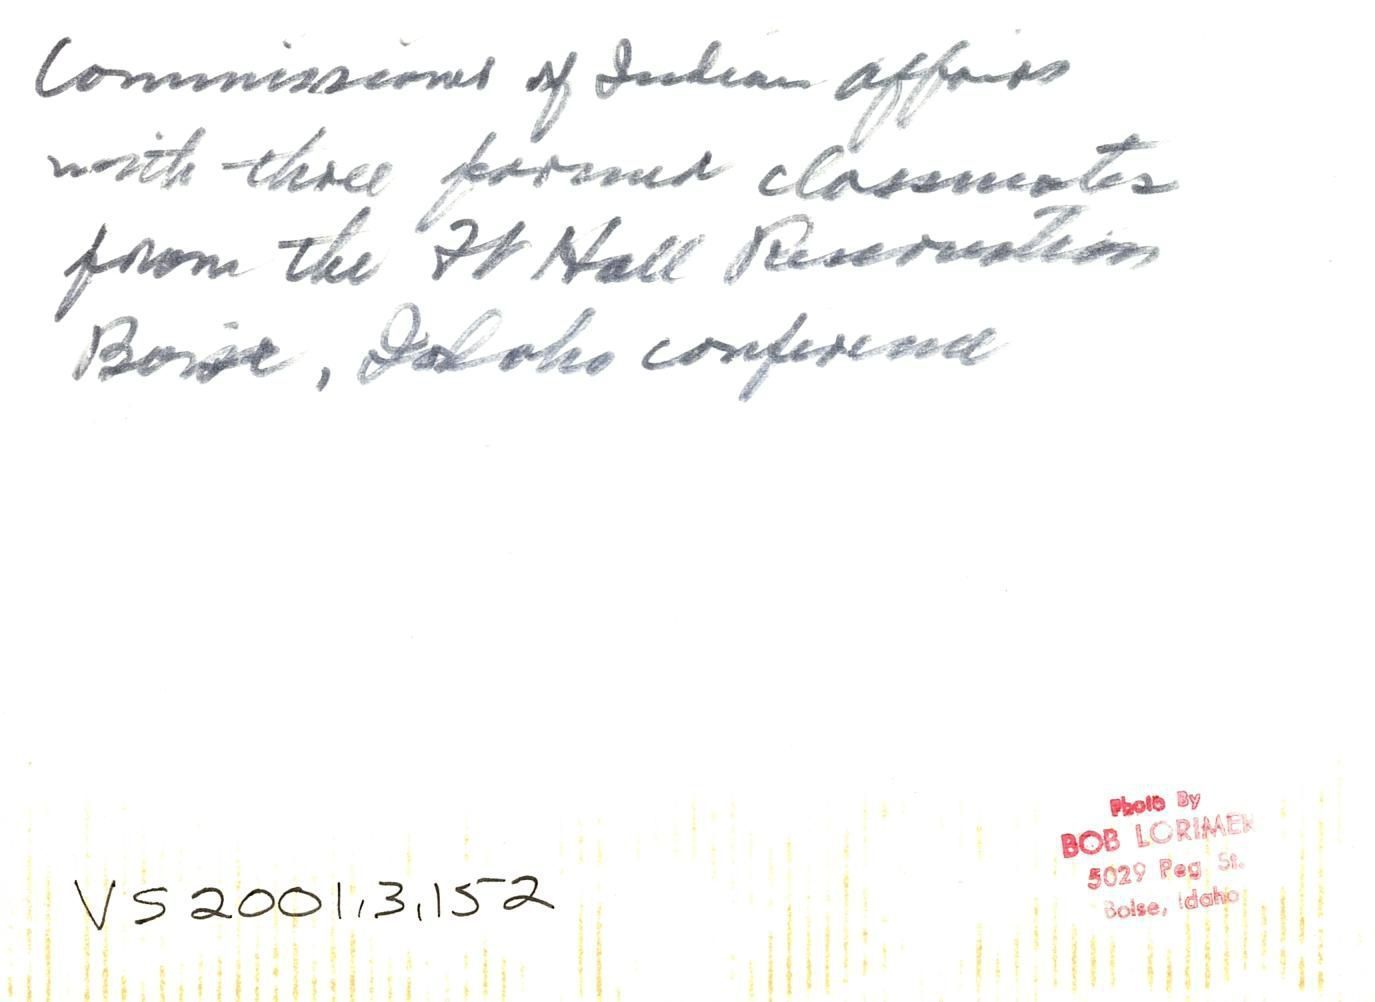 Commissioner of Indian Affairs
with three former classmates
from the Ft Hall Reservation
Boise, Idaho conference
Photo By
BOB LORIMER
5029 Peg St.
Boise, Idaho
VS2001.3.152